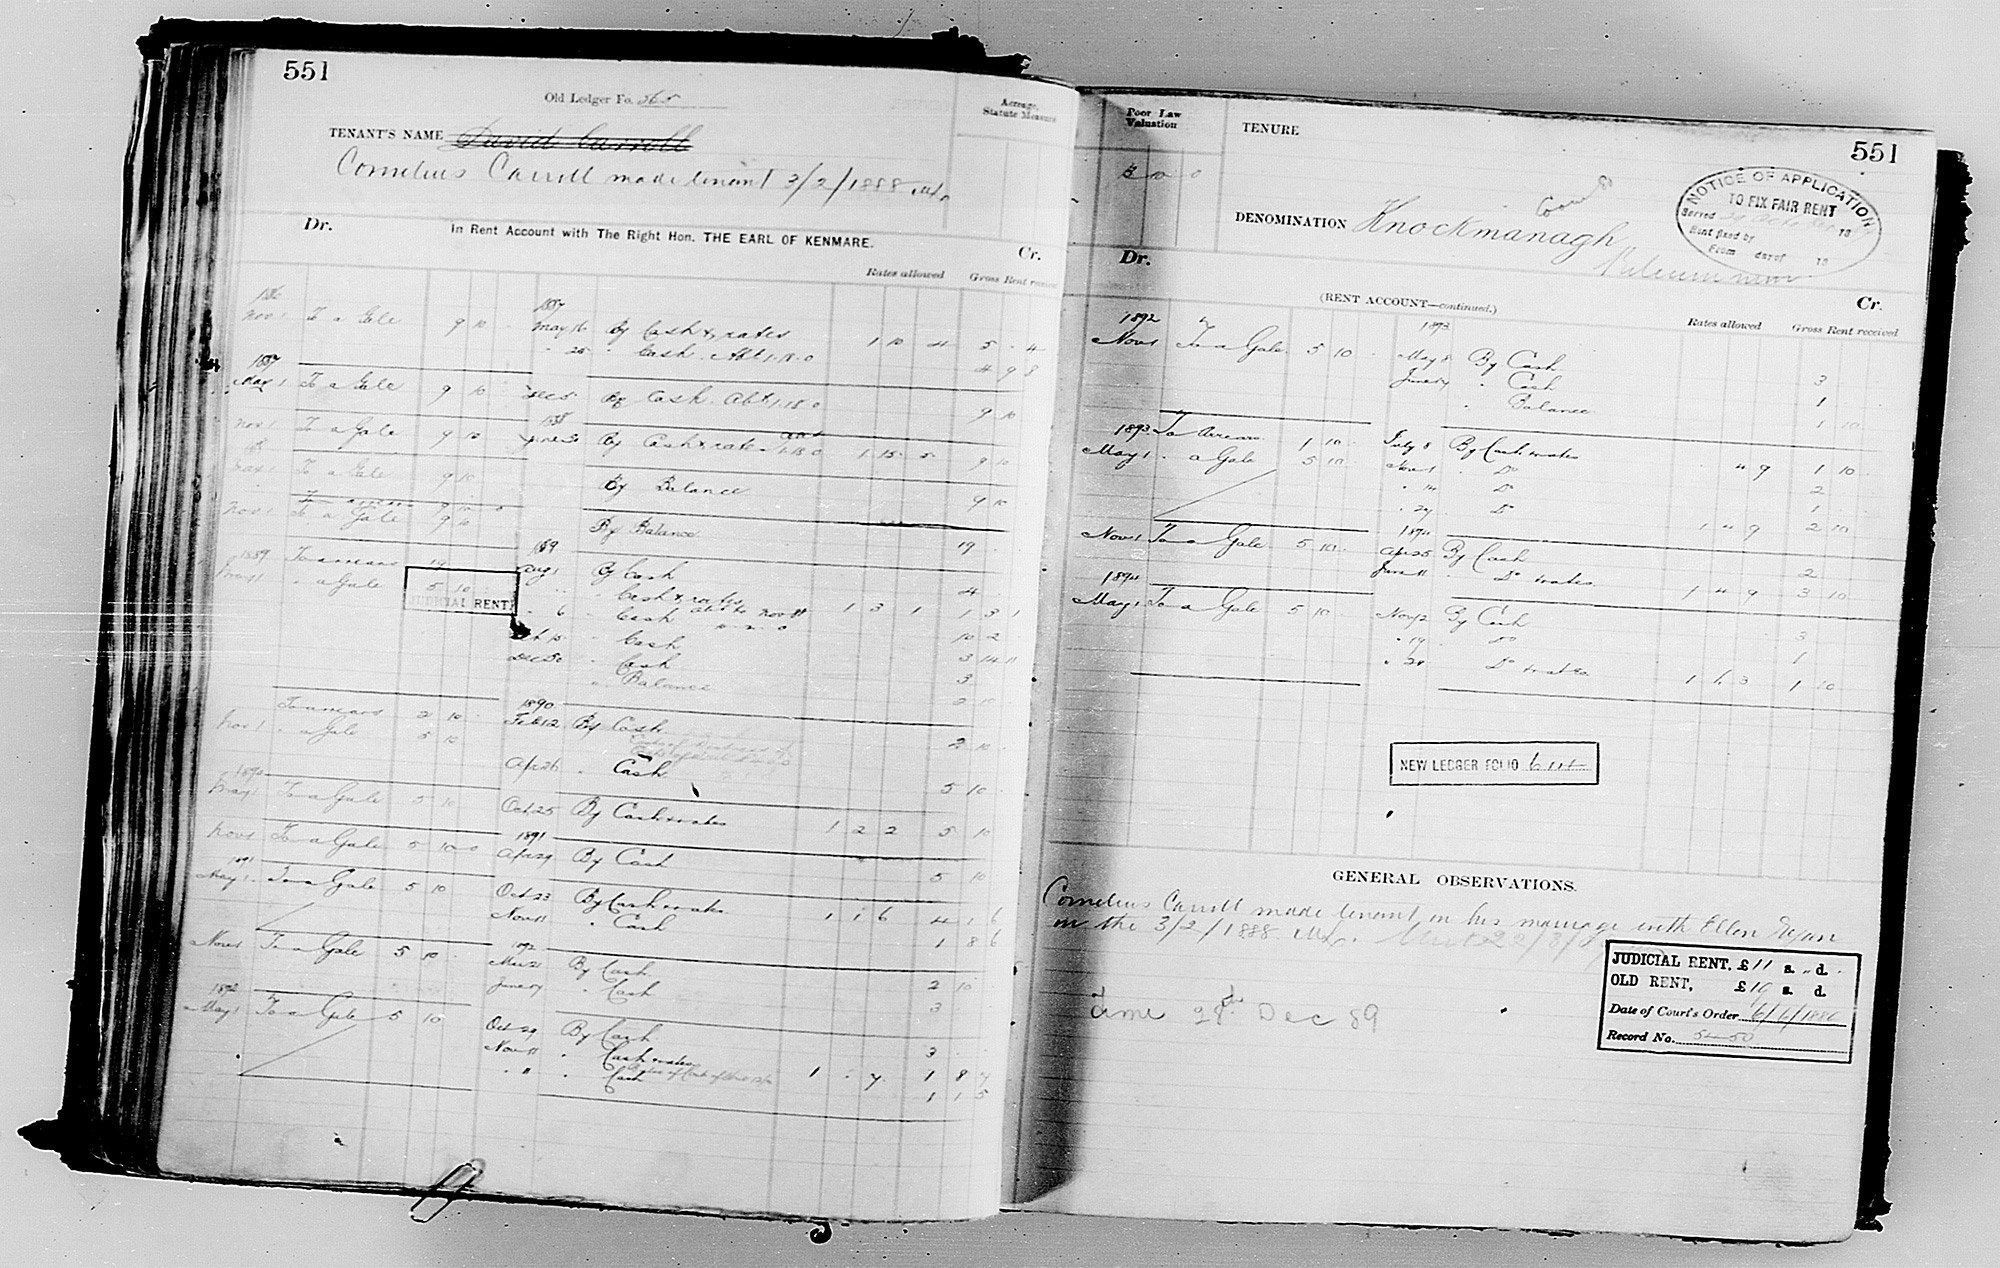 551
Old Ledger Fo. 565
Acreage, Statute Measure
TENANT'S NAME David Carroll
Cornelius Carroll made tenant 3/2/1888
Dr. In Rent Account with The Right Hon. THE EARL OF KENMARE. Cr.
Rates allowed Gross Rent
Nov 1 To a Gale 9 10
1887
May 16 By Cash & rates 1 10 4 5 - 4
" 25 " Cash Abt 1.18.0 4 9 8
1887
May 1 To a Gale 9 10 Dec 5 By Cash Abt 1.18.0 9 10
Nov 1 To a Gale 9 10
1888
June 30 By Cash & rates 1.18.0 1 15 5 9 10
May 1 To a Gale 9 10 By Balance 9 10
To arrears 9 10 0
Nov 1 To a Gale 9 10 By Balance 19
1889 To arrears 19
May 1 " a Gale 5 10
JUDICIAL RENT
1889
Aug 1 By Cash 4
" Cash & rates 1 3 1 1 3 1
" 6 " Cash 10 2
" Cash 3 14 11
Dec 30 " Cash 3
" Balance 2 10
To arrears 2 10
Nov 1 " a Gale 5 10
1890
Feb 12 By Cash 2 10
Apr 26 " Cash 5 10
1890
May 1 To a Gale 5 10 Oct 25 By Cash & rates 1 2 2 5 10
Nov 1 To a Gale 5 10 0
1891
Apr 29 By Cash 5 10
1891
May 1 To a Gale 5 10 Oct 23 By Cash & rates 1 1 6 4 1 6
Nov 11 " Cash 1 8 6
Nov 1 To a Gale 5 10
1892
Mar 21 By Cash 2 10
June " Cash 3
1892
May 1 To a Gale 5 10 Oct 29 By Cash 3
Nov 11 " Cash & rates 1 - 7 1 8 7
" 11 " Cash 1 1 5
Poor Law Valuation
TENURE
551
DENOMINATION Knockmanagh
NOTICE OF APPLICATION
TO FIX FAIR RENT
Served 18
Rent fixed by
From day of 18
Dr. (RENT ACCOUNT—continued.) Cr.
Rates allowed Gross Rent received
1892
Nov 1 To a Gale 5 10
1893
May 8 By Cash 3
June " Cash 1
" Balance 1 10
1893 To Arrears 1 10 July 8 By Cash & rates 4 9 1 10
May 1 " a Gale 5 10 Nov 1 " Do 2
" 14 Do 1
" 27 Do 1 4 9 2 10
Nov 1 To a Gale 5 10
1894
Apr 25 By Cash 2
June 11 " Do & rates 1 4 9 3 10
1894
May 1 To a Gale 5 10 Nov 12 By Cash 3
" 19 " Do 1
" 28 Do & rates 1 1 3 1 10
NEW LEDGER FOLIO
GENERAL OBSERVATIONS.
Cornelius Carroll made tenant, on his marriage with Ellen
on the 3/2/1888
JUDICIAL RENT, £11 s. " d.
OLD RENT, £19 s. d.
Date of Court's Order
Record No.
time 28th Dec 89